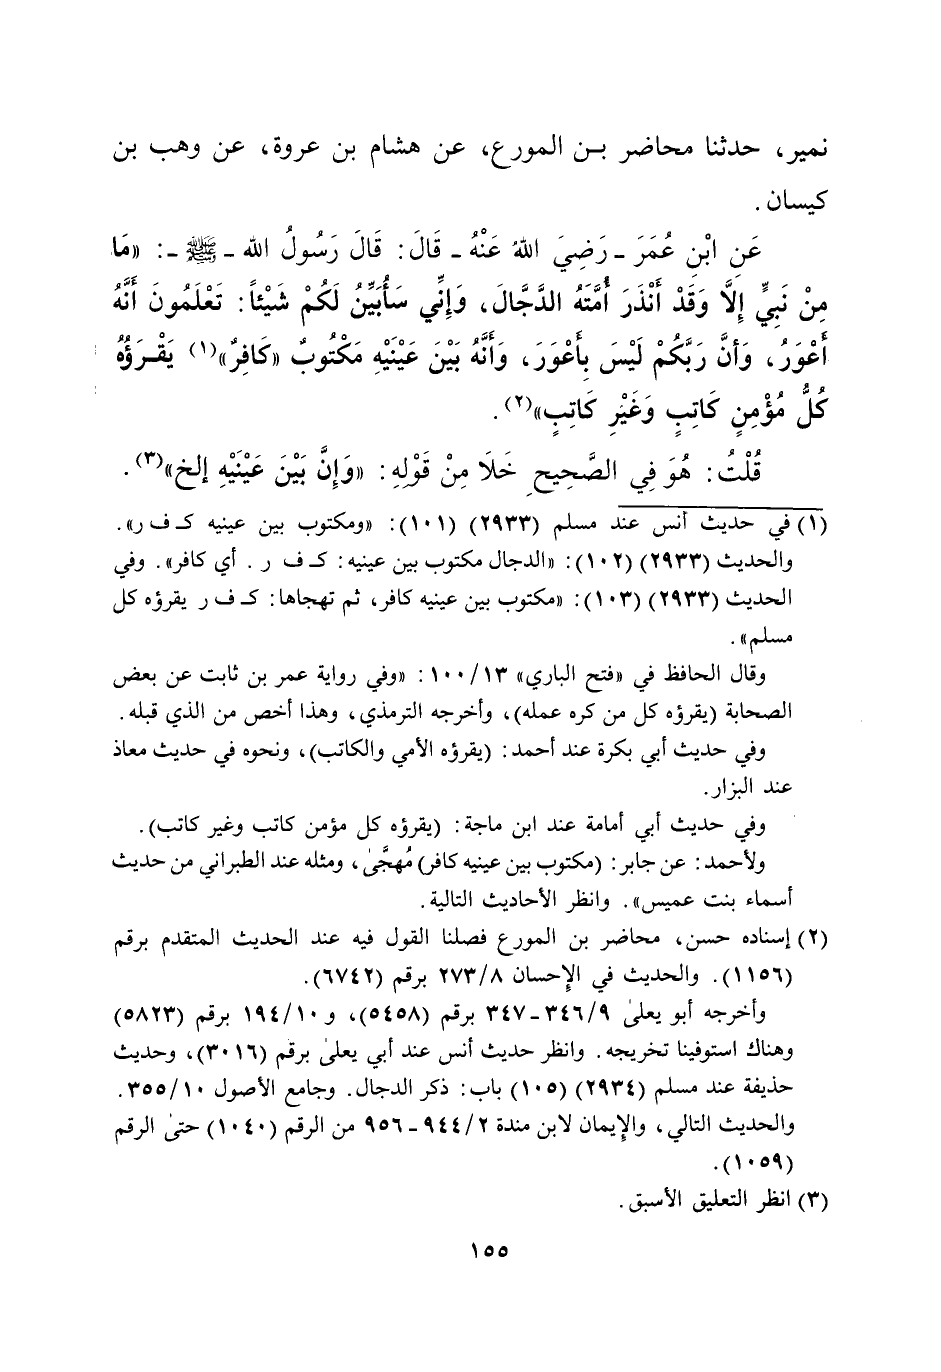 نمير، حدثنا محاضر بـن المورع، عن هشام بن عروة، عن وهب بن
كيسان .
عَنِ ابْنِ عُمَرَ ـ رَضِيَ اللهُ عَنْهُ ـ قَالَ: قَالَ رَسُولُ الله ـ ﷺ ـ: «مَا
مِنْ نَبِيٍّ إِلَّا وَقَدْ أَنْذَرَ أُمَّتَهُ الدَّجَّالَ، وَإِنِّي سَأُبَيِّنُ لَكُمْ شَيْئاً: تَعْلَمُونَ أَنَّهُ
أَعْوَرُ، وَأنَّ رَبَّكُمْ لَيْسَ بِأَعْوَرَ، وَأَنَّهُ بَيْنَ عَيْنَيْهِ مَكْتُوبٌ «كَافِرٌ»(١) يَقْـرَؤُهُ
كُلُّ مُؤْمِنٍ كَاتِبٍ وَغَيْرِ كَاتِبٍ»(٢) .
قُلْتُ: هُوَ فِي الصَّحِيحِ خَلَا مِنْ قَوْلِهِ: «وَإِنَّ بَيْنَ عَيْنَيْهِ إلخ»(٣) .
(١) في حديث أنس عند مسلم (٢٩٣٣) (١٠١): «ومكتوب بين عينيه كـ ف ر» .
والحديث (٢٩٣٣) (١٠٢): «الدجال مكتوب بين عينيه: كـ ف ر . أي كافر» . وفي
الحديث (٢٩٣٣) (١٠٣): «مكتوب بين عينيه كافر، ثم تهجاها: كـ ف ر يقرؤه كل
مسلم» .
وقال الحافظ في «فتح الباري» ١٣/ ١٠٠: «وفي رواية عمر بن ثابت عن بعض
الصحابة (يقرؤه كل من كره عمله)، وأخرجه الترمذي، وهذا أخص من الذي قبله .
وفي حديث أبي بكرة عند أحمد: (يقرؤه الأمي والكاتب)، ونحوه في حديث معاذ
عند البزار.
وفي حديث أبي أمامة عند ابن ماجة: (يقرؤه كل مؤمن كاتب وغير كاتب).
ولأحمد: عن جابر: (مكتوب بين عينيه كافر) مُهجَّىٰ، ومثله عند الطبراني من حديث
أسماء بنت عميس» . وانظر الأحاديث التالية.
(٢) إسناده حسن، محاضر بن المورع فصلنا القول فيه عند الحديث المتقدم برقم
(١١٥٦). والحديث في الإحسان ٢٧٣/٨ برقم (٦٧٤٢).
وأخرجه أبو يعلىٰ ٣٤٦/٩ـ٣٤٧ برقم (٥٤٥٨)، و ١٩٤/١٠ برقم (٥٨٢٣)
وهناك استوفينا تخريجه. وانظر حديث أنس عند أبي يعلىٰ برقم (٣٠١٦)، وحديث
حذيفة عند مسلم (٢٩٣٤) (١٠٥) باب: ذكر الدجال. وجامع الأصول ٣٥٥/١٠.
والحديث التالي، والإيمان لابن مندة ٩٤٤/٢ـ٩٥٦ من الرقم (١٠٤٠) حتىٰ الرقم
(١٠٥٩).
(٣) انظر التعليق الأسبق .
١٥٥